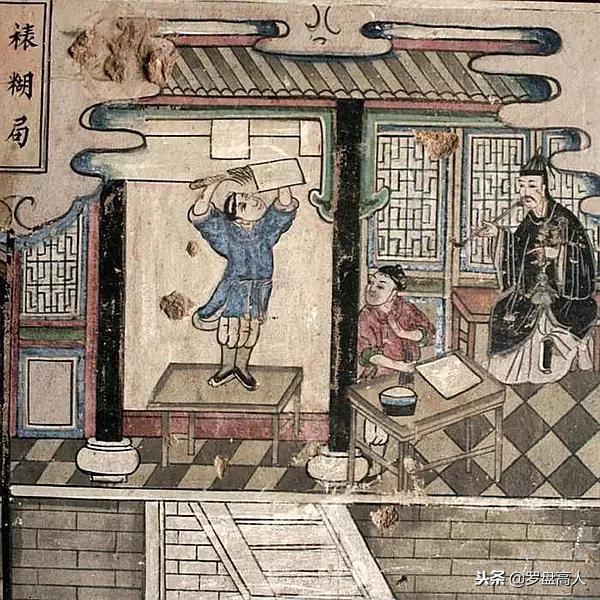 裱糊局
头条 @罗盘高人